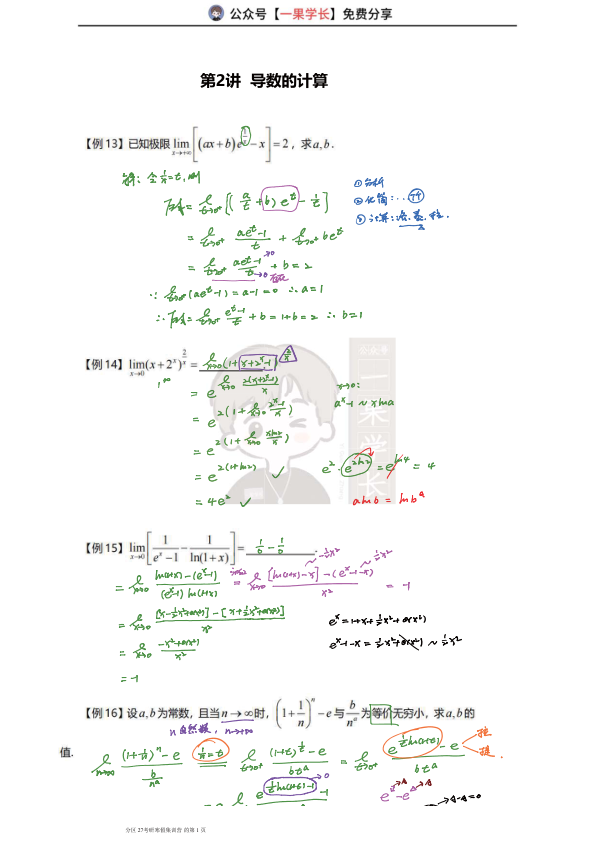 公众号【一果学长】免费分享
第2讲 导数的计算
【例 13】已知极限 lim x→+∞ [(ax+b)e^{1/x} − x] = 2，求 a,b．
解：令 1/x = t, 则
原式 = lim t→0⁺ [(a/t + b) e^t − 1/t]
① 分析
② 化简：…
③ 计算：
= lim t→0⁺ (ae^t−1)/t + lim t→0⁺ be^t
= lim t→0⁺ (ae^t−1)/t + b = 2
→0
→0 存在
∵ lim t→0⁺ (ae^t−1) = a−1 = 0 ∴ a=1
∴ 原式 = lim t→0⁺ (e^t−1)/t + b = 1+b = 2 ∴ b=1
【例 14】lim x→0 (x+2^x)^{2/x} = lim x→0 (1+x+2^x−1)^{2/x}
1^∞
= e^{lim x→0 2(x+2^x−1)/x}
x→0:
a^x−1 ~ xlna
= e^{2(1+lim x→0 (2^x−1)/x)}
= e^{2(1+lim x→0 xln2/x)}
= e^{2(1+ln2)} ✓
e²·e^{2ln2} = e^{ln4} = 4
= 4e² ✓
alnb = lnb^a
公众号
一果学长
【例 15】lim x→0 [1/(e^x−1) − 1/ln(1+x)] = 1/0 − 1/0
= lim x→0 (ln(1+x)−(e^x−1))/((e^x−1)ln(1+x)) = lim x→0 ([ln(1+x)−x]−(e^x−1−x))/x² = −1
~ −½x² ~ ½x²
= lim x→0 ([x−½x²+o(x²)]−[x+½x²+o(x²)])/x²
e^x = 1+x+½x²+o(x²)
= lim x→0 (−x²+o(x²))/x²
e^x−1−x = ½x²+o(x²) ~ ½x²
= −1
【例 16】设 a,b 为常数，且当 n→∞ 时，(1+1/n)^n − e 与 b/n^a 为等价无穷小，求 a,b 的
n 自然数, n→+∞
值.
lim n→∞ ((1+1/n)^n − e)/(b/n^a) 1/n = t lim t→0⁺ ((1+t)^{1/t} − e)/(bt^a) = lim t→0⁺ (e^{1/t ln(1+t)} − e)/(bt^a)
提
e^▲ − e^▲
→▲−▲=0
分区 27考研寒假集训营 的第 1 页